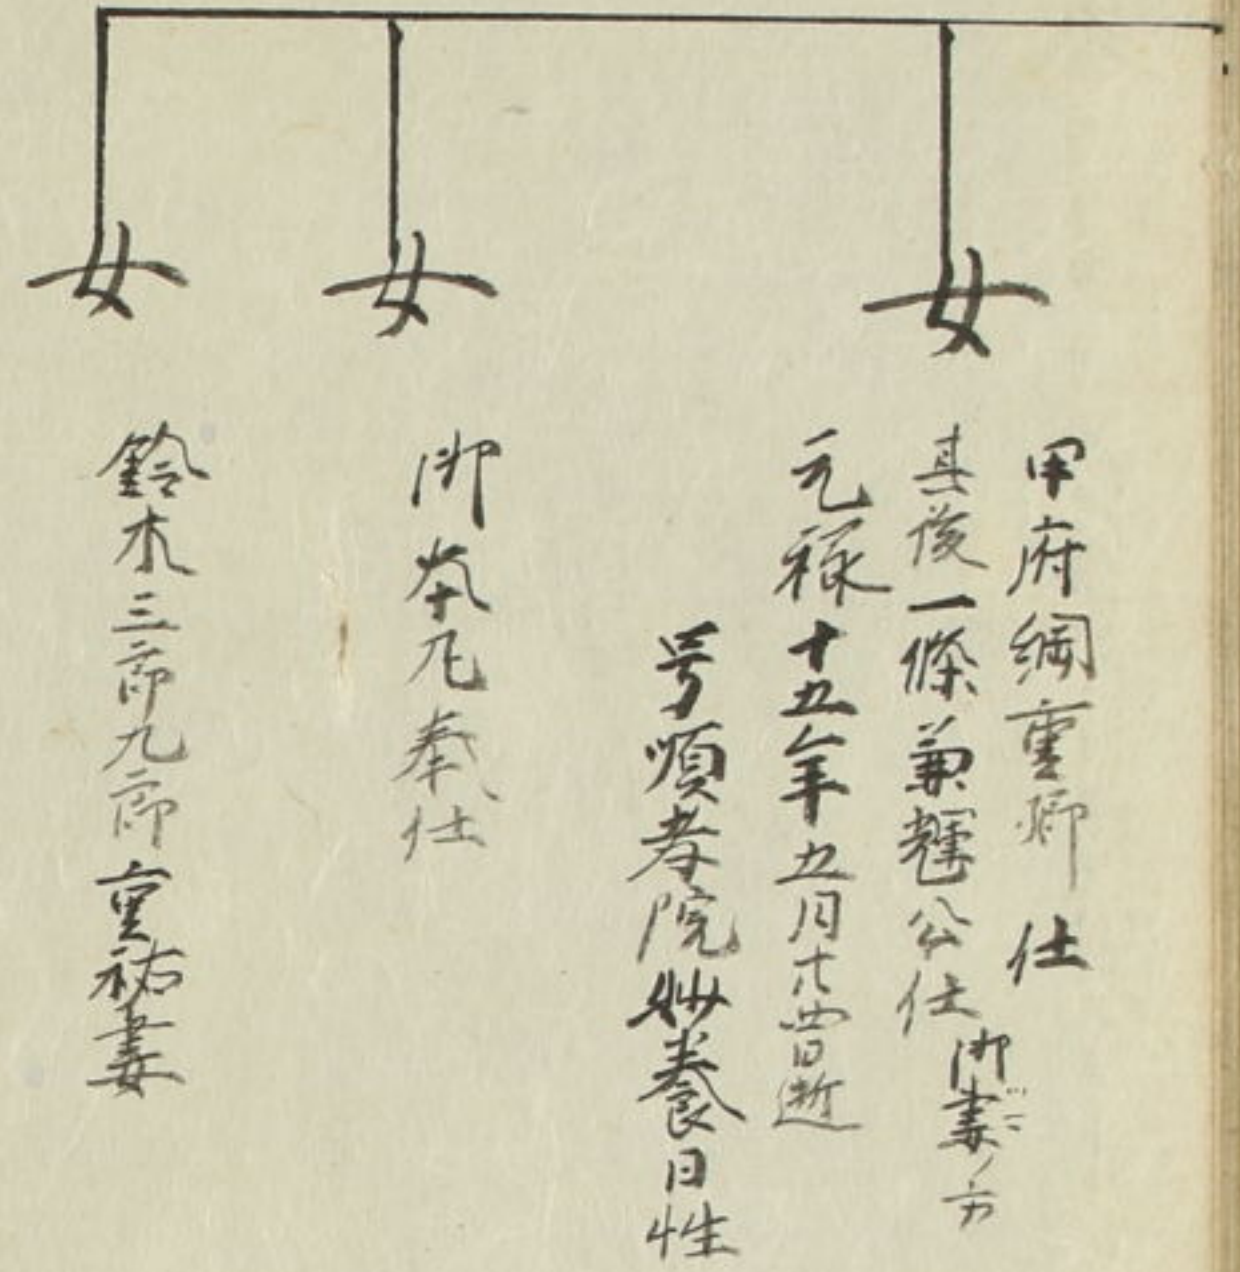 女
甲府綱重卿仕
其後一條兼輝公仕
御妻ノ方
元禄十五年五月十四日逝
号順孝院妙養日性
女
御本丸奉仕
女
鈴木三郎九郎重祐妻